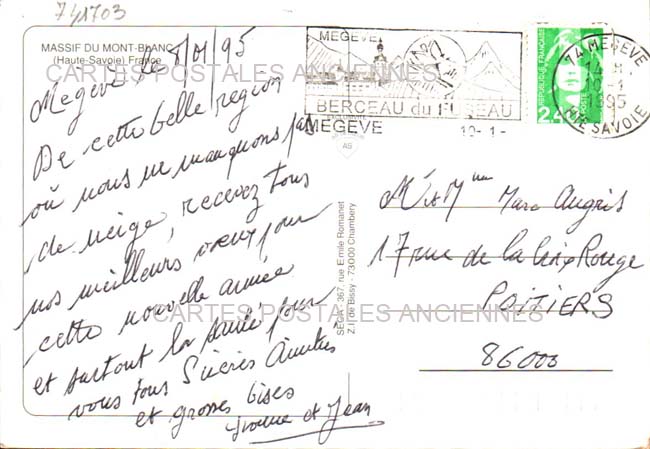 741703
MASSIF DU MONT-BLANC
(Haute-Savoie) France
CARTES POSTALES ANCIENNES
Megève le 8/01/95
De cette belle région
où nous ne manquons pas
de neige, recevez tous
nos meilleurs vœux pour
cette nouvelle année
et surtout la santé pour
vous tous Sincères Amitiés
et grosses bises
Yvonne et Jean
SEGA - 367, rue Emile Romanet
Z.I. de Bissy - 73000 Chambery
MEGEVE
BERCEAU du FUSEAU
MEGEVE 10-1-
REPUBLIQUE FRANÇAISE
POSTE
2,40
74 MEGEVE
14 H
10-1
1995
HTE SAVOIE
Mr et Mme Marc Augris
17 rue de la Croix Rouge
POITIERS
CARTES POSTALES ANCIENNES
86000